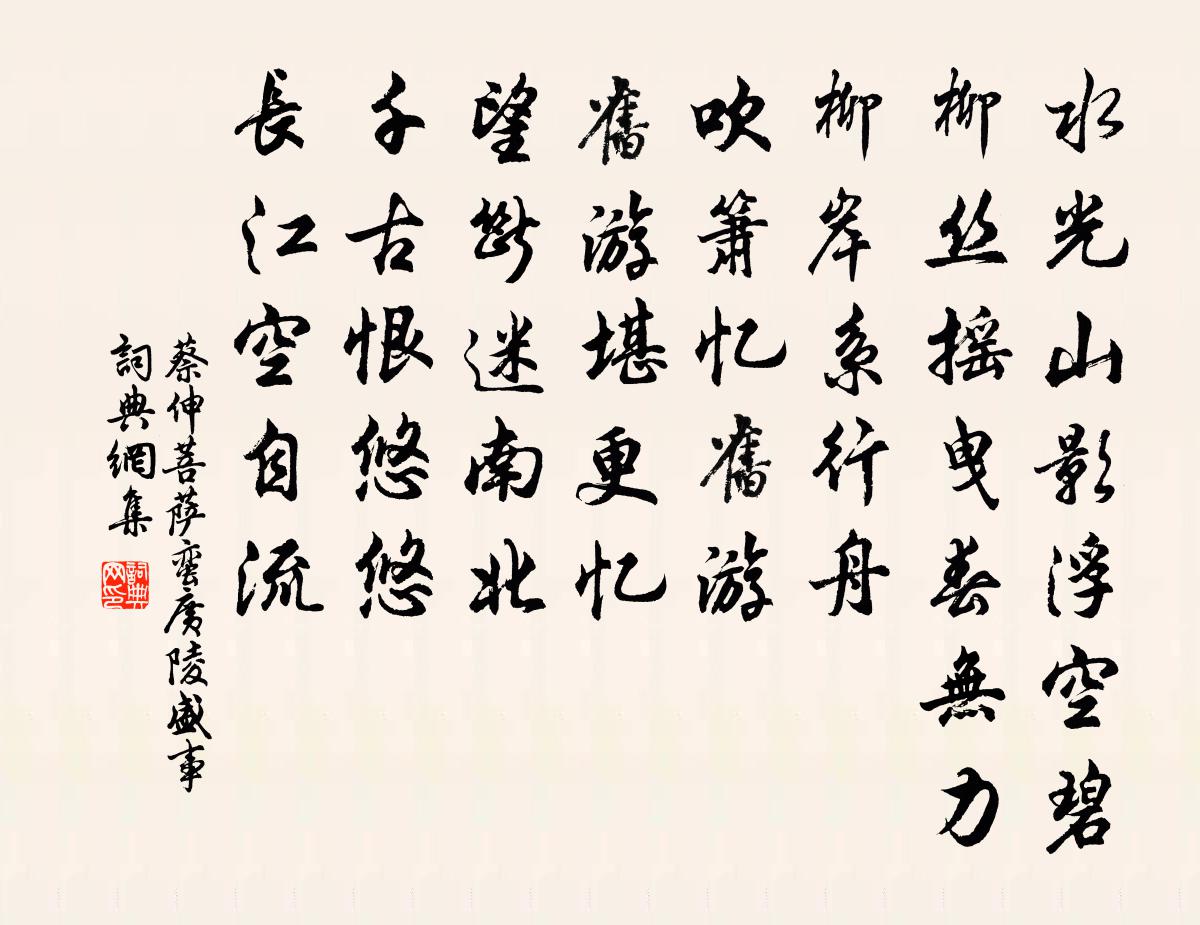 水光山影浮空碧
柳丝摇曳春無力
柳岸系行舟
吹箫忆舊游
舊游堪更忆
望断迷南北
千古恨悠悠
長江空自流
蔡伸菩萨蛮廣陵盛事
詞典網集
詞典网印